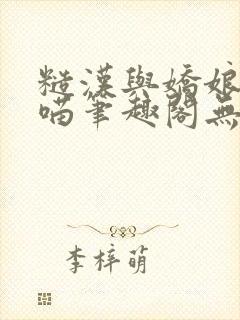 糙漢與嬌娘
喵筆趣閣無
李梓萌